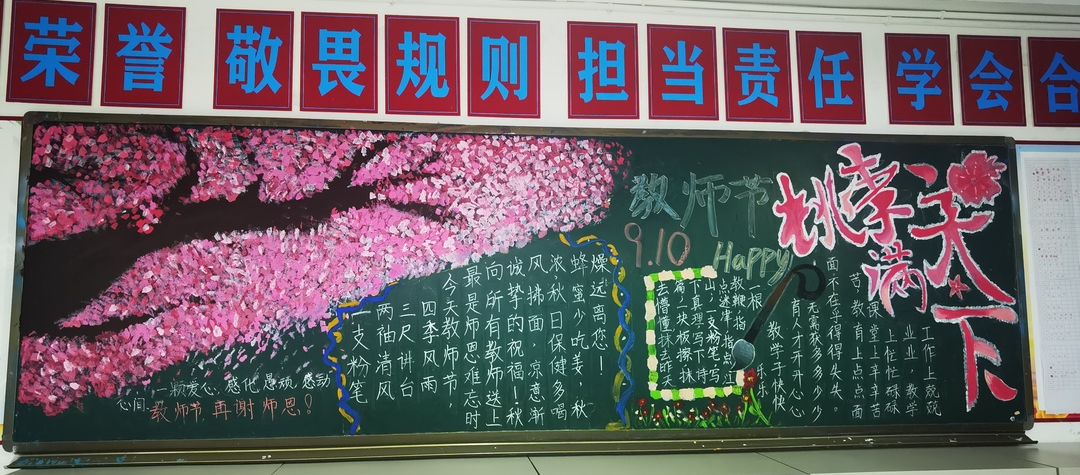 荣誉 敬畏规则 担当责任 学会合
教师节
9.10
Happy
桃李满天下
燥远离您！
蜂蜜少吃姜，秋
浓秋日保健多喝
风拂面，凉意渐
诚挚的祝福！秋
向所有教师送上
最是师恩难忘时
今天教师节，
四季风雨
三尺讲台
两袖清风
一支粉笔
一颗爱心，感化愚顽，感动
心间
教师节再谢师恩！
一根
教鞭，指指点
点迷津，指点
山，一支粉笔，写
下真理，写下诗
篇，一块板擦，抹
去懵懂，抹去昨天
工作上兢兢
业业，教学
上忙忙碌碌
课堂上辛辛苦
苦，教育上点点面
面不在乎得得失失。
无需获多多少少
育人才开开心心
教学子快快
乐乐